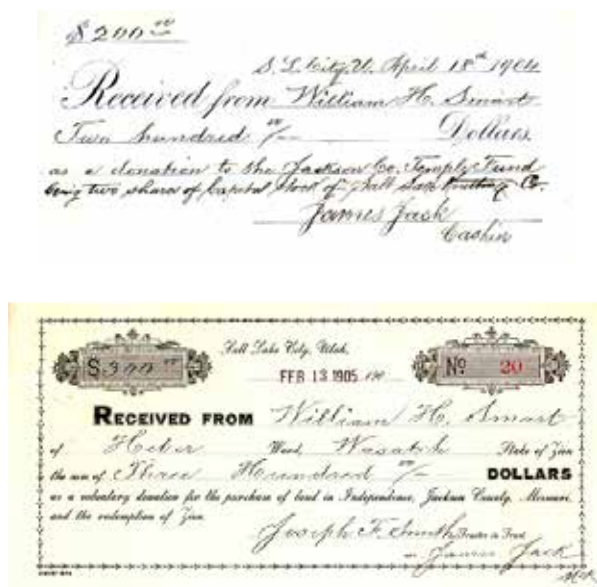 $200 00
S. L. City, U. April 18th 1904
Received from William H. Smart
Two hundred 00/— Dollars
as a donation to the Jackson Co. Temple Fund
being two shares of Capital Stock of Salt Lake Co.
James Jack
Cashier
$300 00 Salt Lake City, Utah, No 20
FEB 13 1905 190
RECEIVED FROM William H. Smart
of Heber Ward, Wasatch Stake of Zion
the sum of Three Hundred 00/— DOLLARS
as a voluntary donation for the purchase of land in Independence, Jackson County, Missouri,
and the redemption of Zion.
Joseph F. Smith Trustee in Trust
James Jack